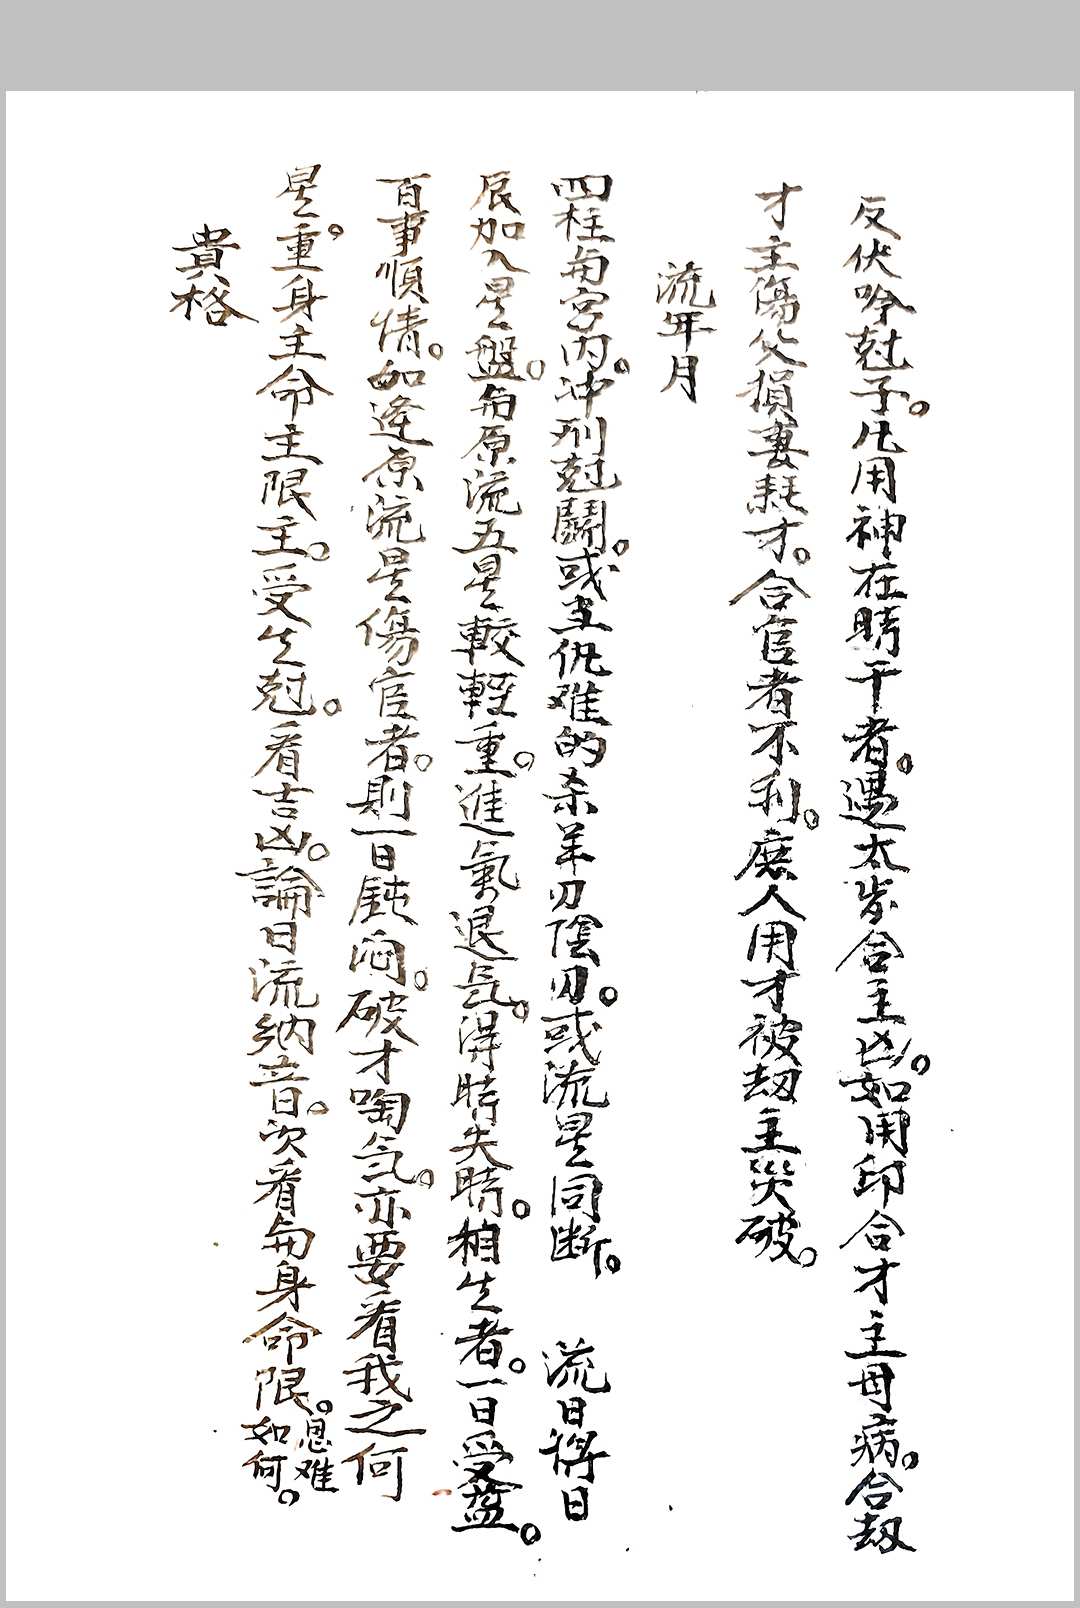 反伏吟尅子。凡用神在時干者。遇太岁合主凶。如用印合才主母病。合刼
才主傷父損妻耗才。合官者不利。庶人用才被刼主災破。
流年月
四柱與宫内。冲刑尅鬭。或主仇难的杀羊刃陰刃。或流星同断。 流日將日
辰加入星盤。與原流五星較輕重。進氣退氣。得時失時。相生者。一日受益。
百事順情。如逢原流星傷官者。則一日鈍闷。破才啕气。亦要看我之何
星。重身主命主限主。受生尅。看吉凶。論日流納音。次看與身命限。恩难如何。
貴格